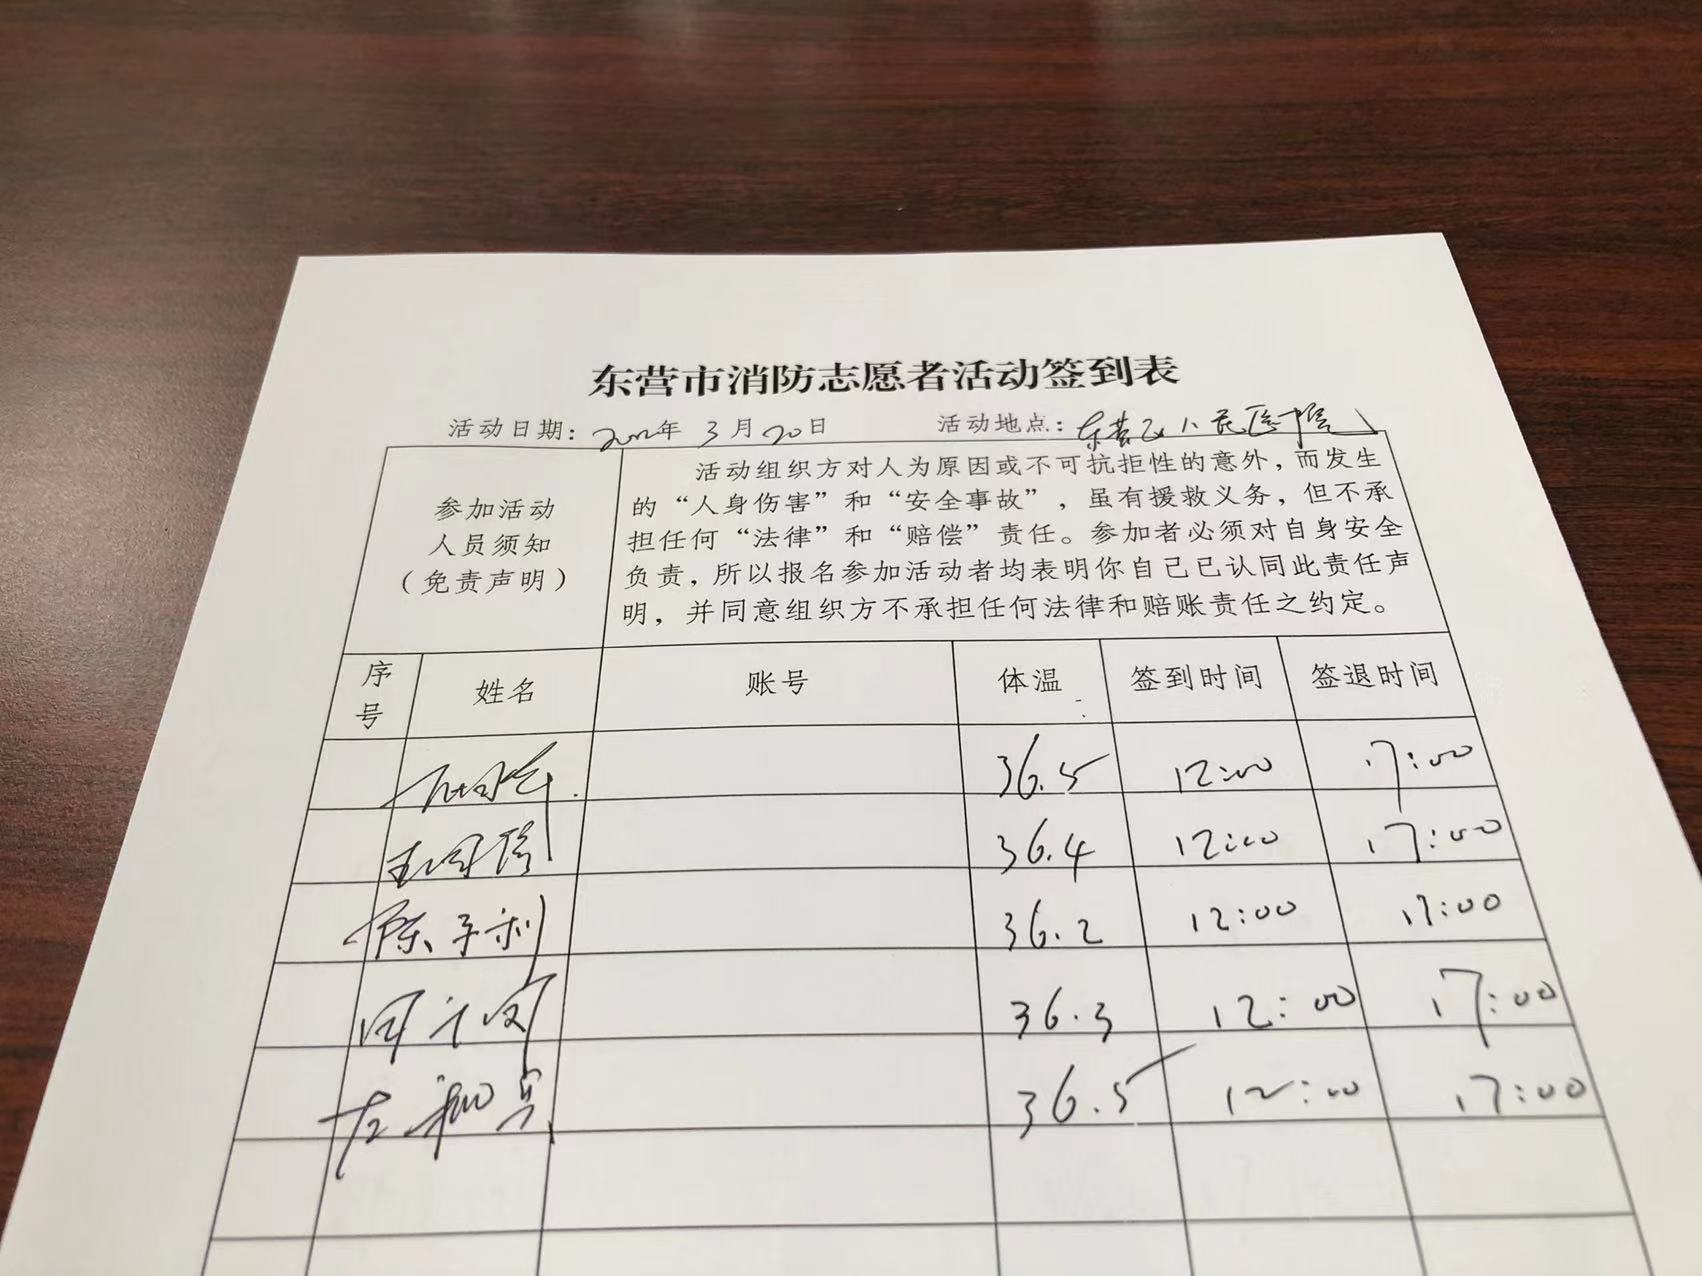 东营市消防志愿者活动签到表
活动日期：2022年 3月 20日 活动地点：东营区人民医院
参加活动
人员须知
（免责声明）
活动组织方对人为原因或不可抗拒性的意外，而发生
的“人身伤害”和“安全事故”，虽有援救义务，但不承
担任何“法律”和“赔偿”责任。参加者必须对自身安全
负责，所以报名参加活动者均表明你自己已认同此责任声
明，并同意组织方不承担任何法律和赔账责任之约定。
序号 姓名 账号 体温 签到时间 签退时间
36.5 12:00 17:00
36.4 12:00 17:00
陈子利 36.2 12:00 17:00
36.3 12:00 17:00
36.5 12:00 17:00